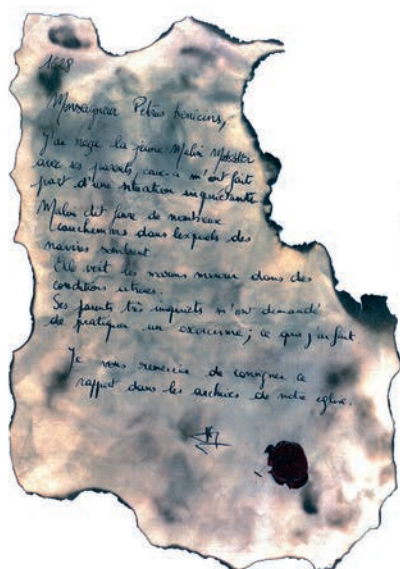 1628
Monseigneur Petrus
J'ai reçue la jeune Malin
avec ses parents, ceux-ci m'ont fait
part d'une situation inquiétante
Malin dit faire de nombreux
cauchemars dans lesquels des
navires sombrent
Elle voit les marins mourir dans des
conditions atroces.
Ses parents très inquiets m'ont demandé
de pratiquer un exorcisme ; ce que j'ai fait
Je vous remercie de consigner ce
rapport dans les archives de notre église.